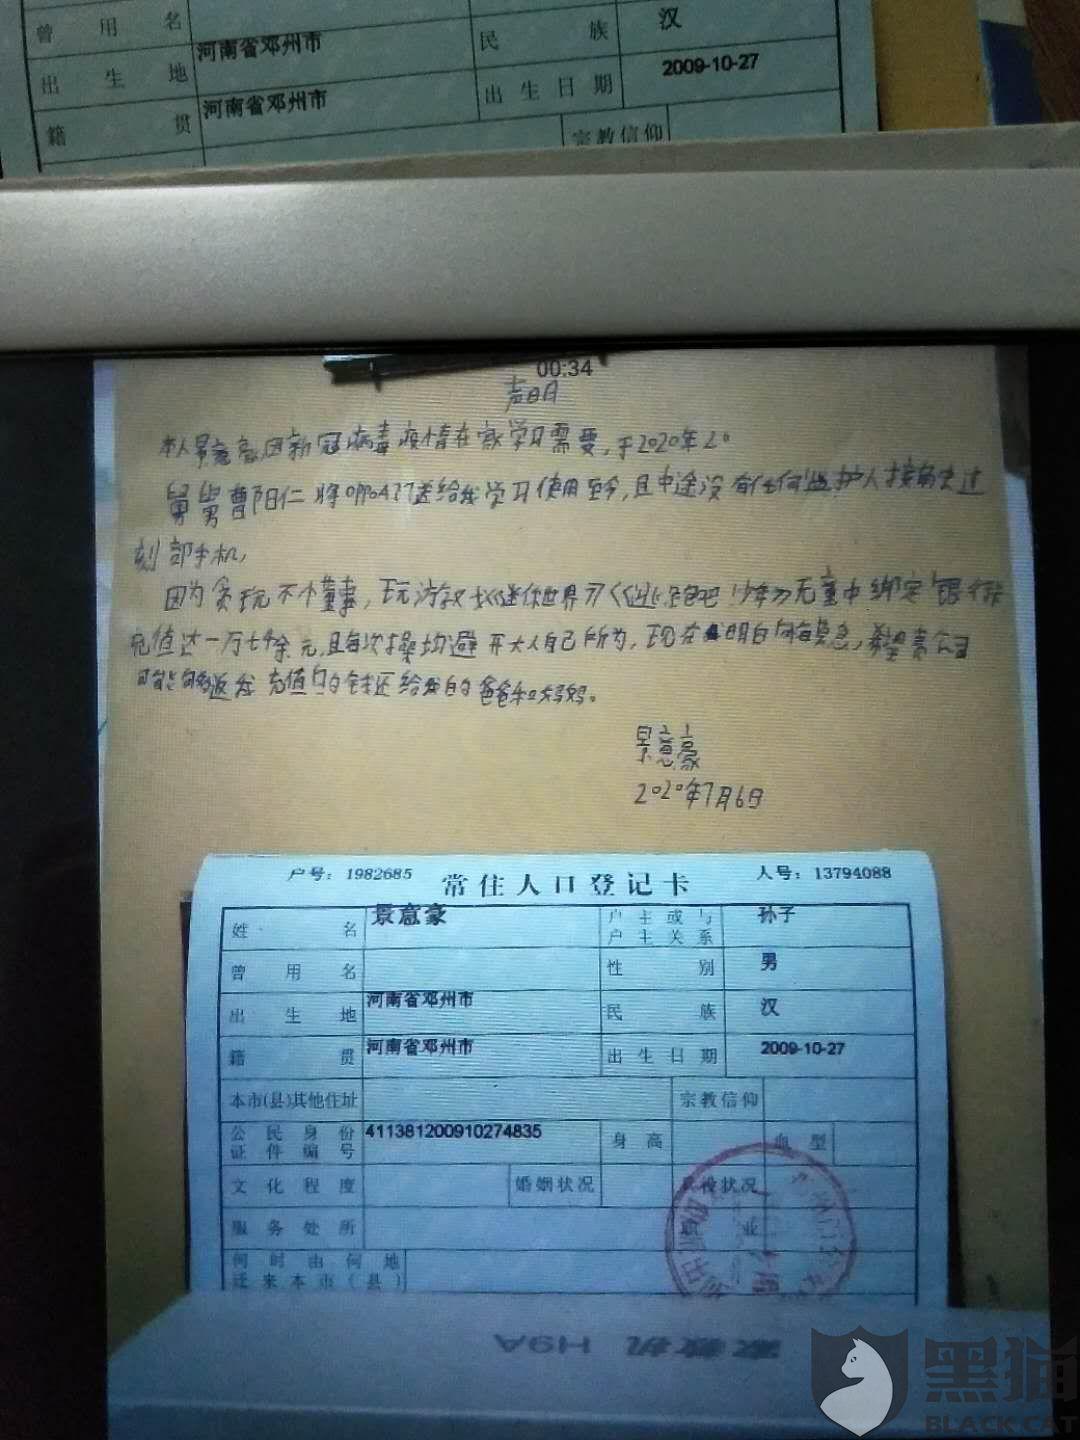 曾用名
河南省邓州市
民族
汉
出生地
河南省邓州市
出生日期
2009-10-27
籍贯
宗教信仰
00:34
声明
本人景意豪因新冠病毒疫情在家学习需要,于2020年2。
舅舅曹阳仁将OPPOA77送给我学习使用至今,且中途没有任何监护人接触过
刻部手机,
因为贪玩不懂事,玩游戏《迷你世界》 无意中绑定银行卡
充值达一万七千余元,且每次操均避开大人自己所为,现在 明白 希望贵公司
返 我充值的钱还给我的爸爸和妈妈。
景意豪
2020年7月6日
户号:1982685
常住人口登记卡
人号:13794088
姓名
景意豪
户主或与户主关系
孙子
曾用名
性别
男
出生地
河南省邓州市
民族
汉
籍贯
河南省邓州市
出生日期
2009-10-27
本市(县)其他住址
宗教信仰
公民身份证件编号
411381200910274835
身高
血型
文化程度
婚姻状况
兵役状况
服务处所
职业
何时由何地迁来本市(县)
家教机 H9A
黑猫
BLACK CAT